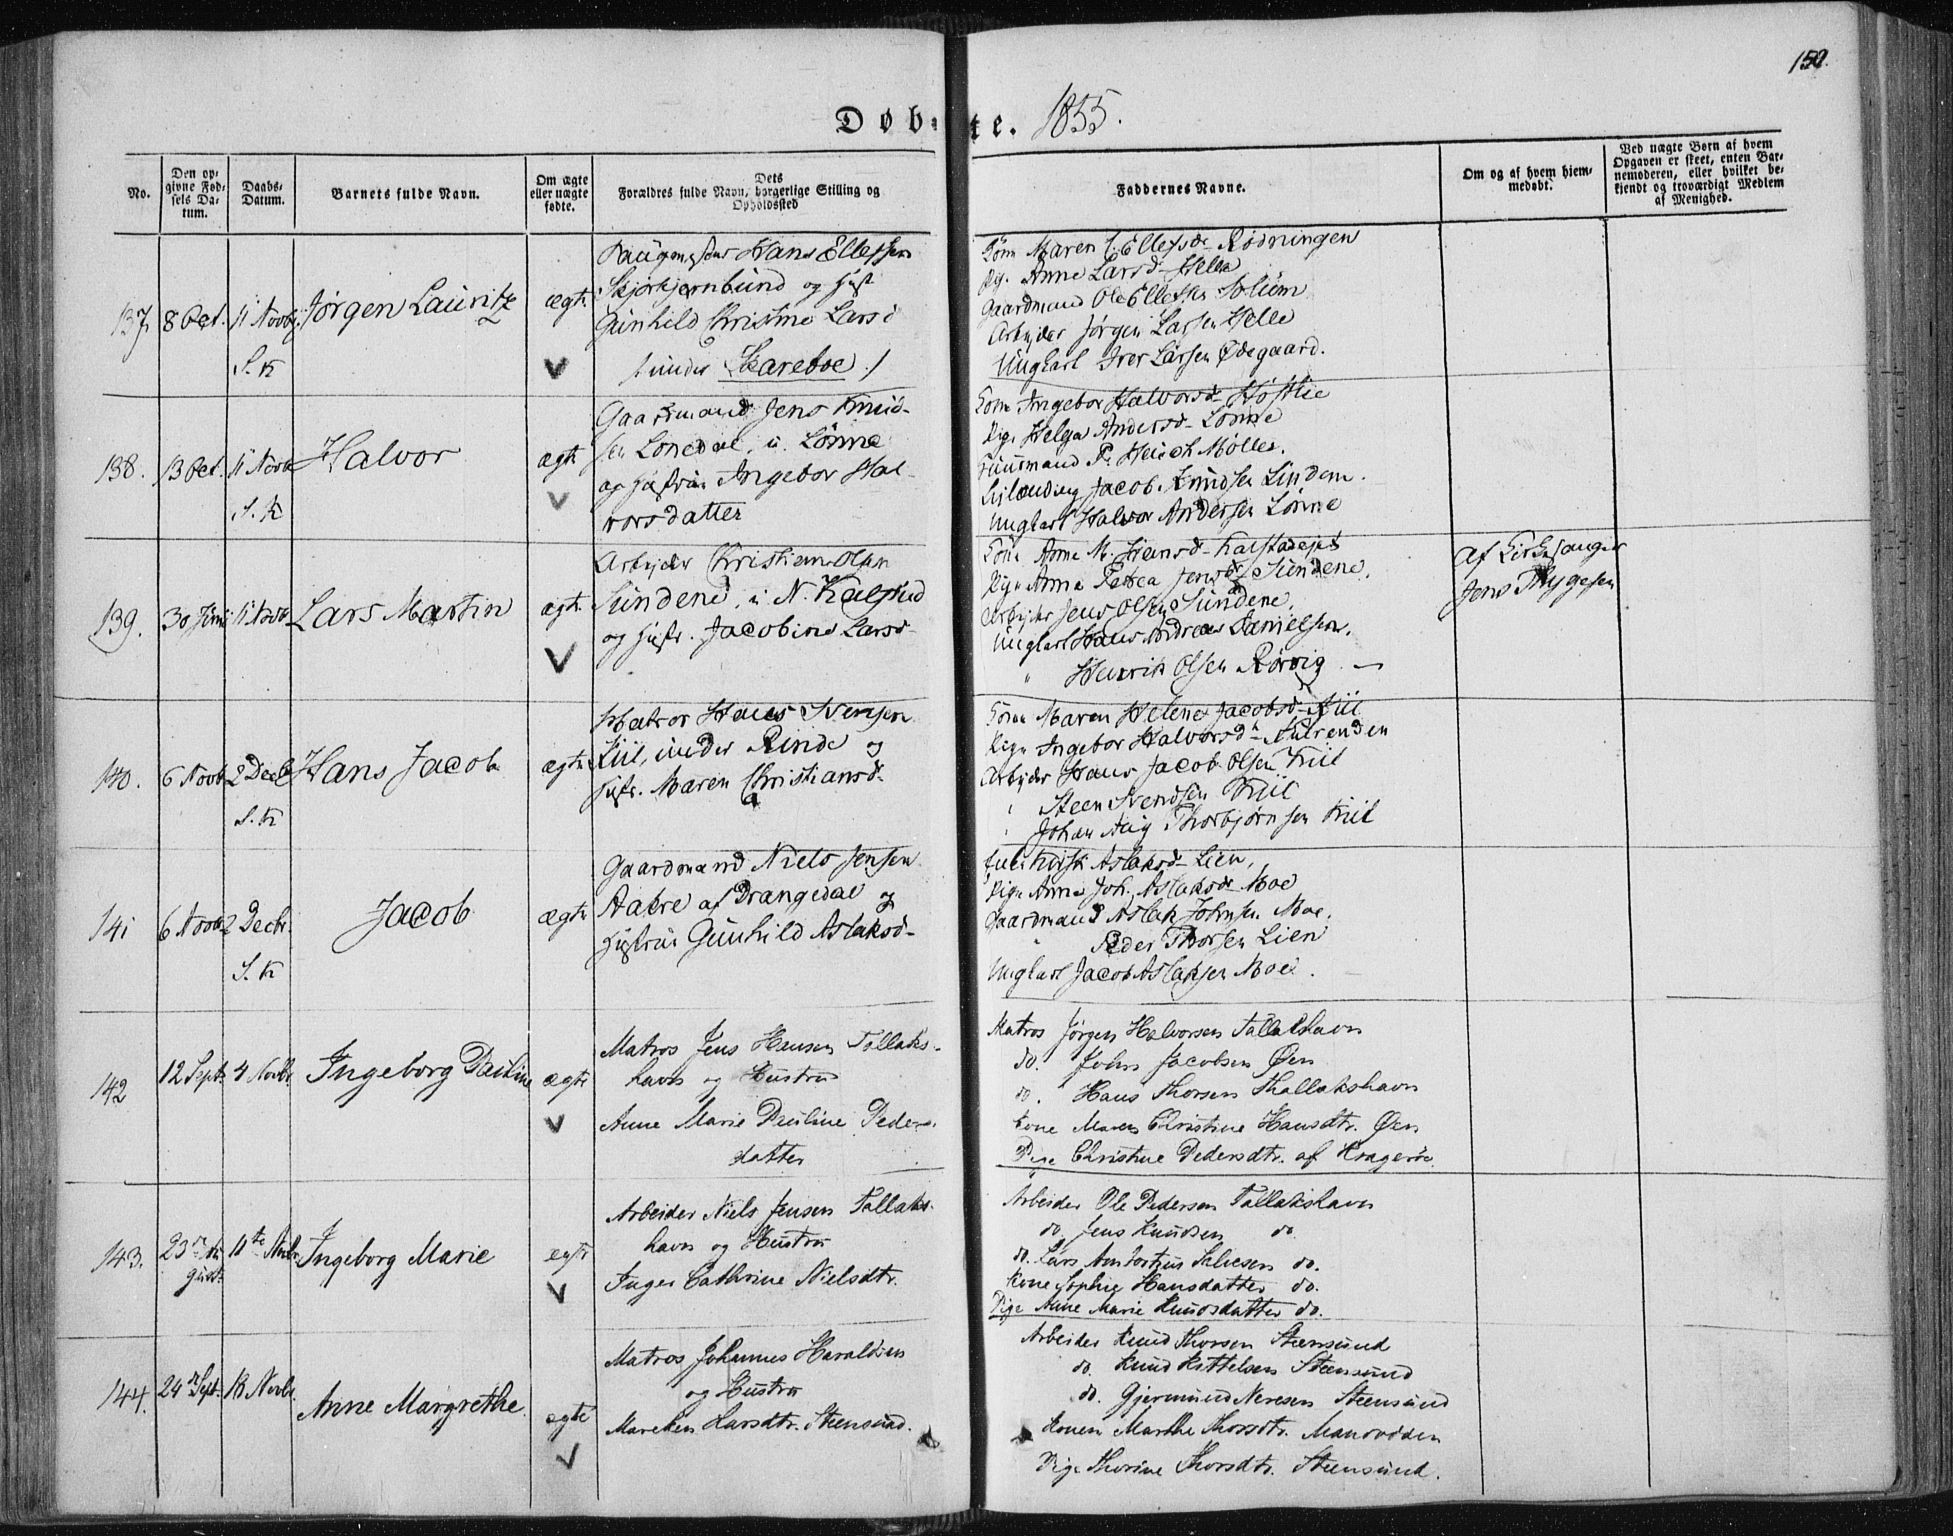 150.
Døbte. 1855.
No.
Den op-
givne Fød-
sels Da-
tum.
Daabs-
Datum.
Barnets fulde Navn.
Om ægte
eller uægte
fødte.
Dets
Forældres fulde Navn, borgerlige Stilling og
Opholdssted
Faddernes Navne.
Om og af hvem hiem-
medøbt.
Ved uægte Børn af hvem
Opgaven er skeet, enten Bar-
nemoderen, eller hvilket be-
kjendt og troværdigt Medlem
af Menighed.
137. 8 Oct. 11 Novb. Jørgen Lauritz ægte
S. K
Hans Ellefsen
og Hust
Gunhild Christine Larsd
/ under Skareboe /
Kone Maren Ellefsdr Rødningen
Pig. Anne Larsd Helle
Gaardmand Ole Ellefsen Solum
Arbejder Jørgen Larsen Helle
Ungkarl Iver Larsen Ødegaard.
138. 13 Oct. 11 Novb Halvor ægte
S. K
Gaardmand Jens Knud-
sen Lonedal u. Lønne
og Hustrue Ingebor Hal-
vorsdatter
Kone Ingebor Halvorsdr Høstlie
Pige Helga Andersd Lønne
Huusmand P. Møller.
Jacob Knudsen Lindem.
Ungkarl Halvor Andersen Lønne
139. 30 Juni 11 Novb Lars Martin ægte
Arbejder Christian Olsen
Sundene, u N. Kalstad
og Hustr. Jacobine Larsd
Kone Anne M. Hansd
Pige Anne Petrea Jensdr Sundene.
Arbejder Jens Olsen Sundene.
Ungkarl Hans Andreas Danielsen.
" Henrik Olsen Rørvig
af Kirkesanger
Jens Thygesen
140. 6 Novb 2 Decb Hans Jacob ægte
S. K
Matros Hans Svensen
Kiil, under Rinde og
Hustr. Maren Christiansd
Kone Maren Helene Jacobsd Kiil
Pige Ingebor Halvorsdr
Arbejder Hans Jacob Olsen Kiil
" Steen Svendsen Kiil
" Johan Aug Thorbjørnsen Kiil
141 6 Novb 2 Decbr. Jacob ægte
S. K
Gaardmand Niels Jensen
Aakre af Drangedal og
Hustrue Gunhild Aslaksd
Kirsti Aslaksd Lien,
Pige Anne Joh. Aslaksdr Moe
Gaardmand Aslak Johnsen Moe.
" Peder Thorsen Lien
Ungkarl Jacob Aslaksen Moe.
142 12 Sept. 4 Novbr Ingeborg Pauline ægte
Matros Jens Hansen Tallaks-
havn og Hustru
Anne Marie Pauline Peders-
datter
Matros Jørgen Halvorsen Tallakshavn
do. John Jacobsen Øen
do. Hans Thorsen Thallakshavn
Kone Maren Christine Hansdtr. Øen
Pige Christine Pedersdtr. af Kragerøe.
143. 23de Au- 11te Novbr Ingeborg Marie ægte
gust
Arbeider Niels Jensen Tallaks-
havn og Hustru
Inger Cathrine Nielsdtr.
Arbeider Ole Pedersen Tallakshavn
do Jens Knudsen do.
do. Lars do.
Kone Sophie Hansdatter do.
Pige Anne Marie Knudsdatter do.
144. 24de Sept. 18 Novbr. Anne Margrethe ægte
Matros Johannes Haraldsen
og Hustru
Mareken Larsdtr. Steensund.
Arbeider Knud Thorsen Steensund
do. Knud Kittelsen Steensund
do. Gjermund Neresen Steensund
Konen Marthe Thorsdtr.
Pige Thorine Thorsdtr. Steensund.